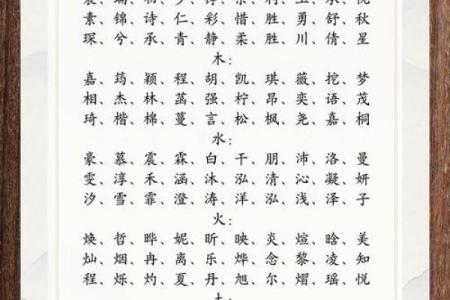 素、锦、诗、仁、彩、惜、胜、勇、舒、秋
琛、兮、承、青、静、柔、胜、川、倩、星
木:
嘉、筠、颖、程、胡、凯、琪、薇、挖、梦
相、杰、林、菡、强、柠、昂、奕、语、茂
琦、楷、棉、蔓、言、松、枫、尧、嘉、桐
水:
豪、慕、震、霖、白、干、朋、沛、洛、曼
雯、淳、禾、涵、沐、泓、清、沁、凝、妍
汐、雪、霏、澄、涛、洋、泓、浅、泽、子
火:
焕、哲、晔、妮、昕、映、炎、煊、晗、美
灿、烟、冉、离、乐、烨、念、黎、凌、知
程、烁、灼、夏、丹、旭、尔、熠、瑶、悦
土: